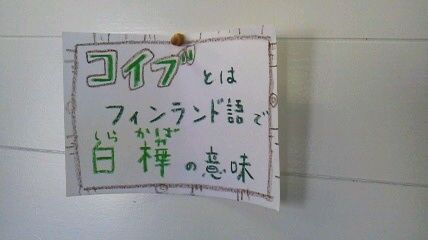 コイブとは
フィンランド語で
しらかば
白樺の意味